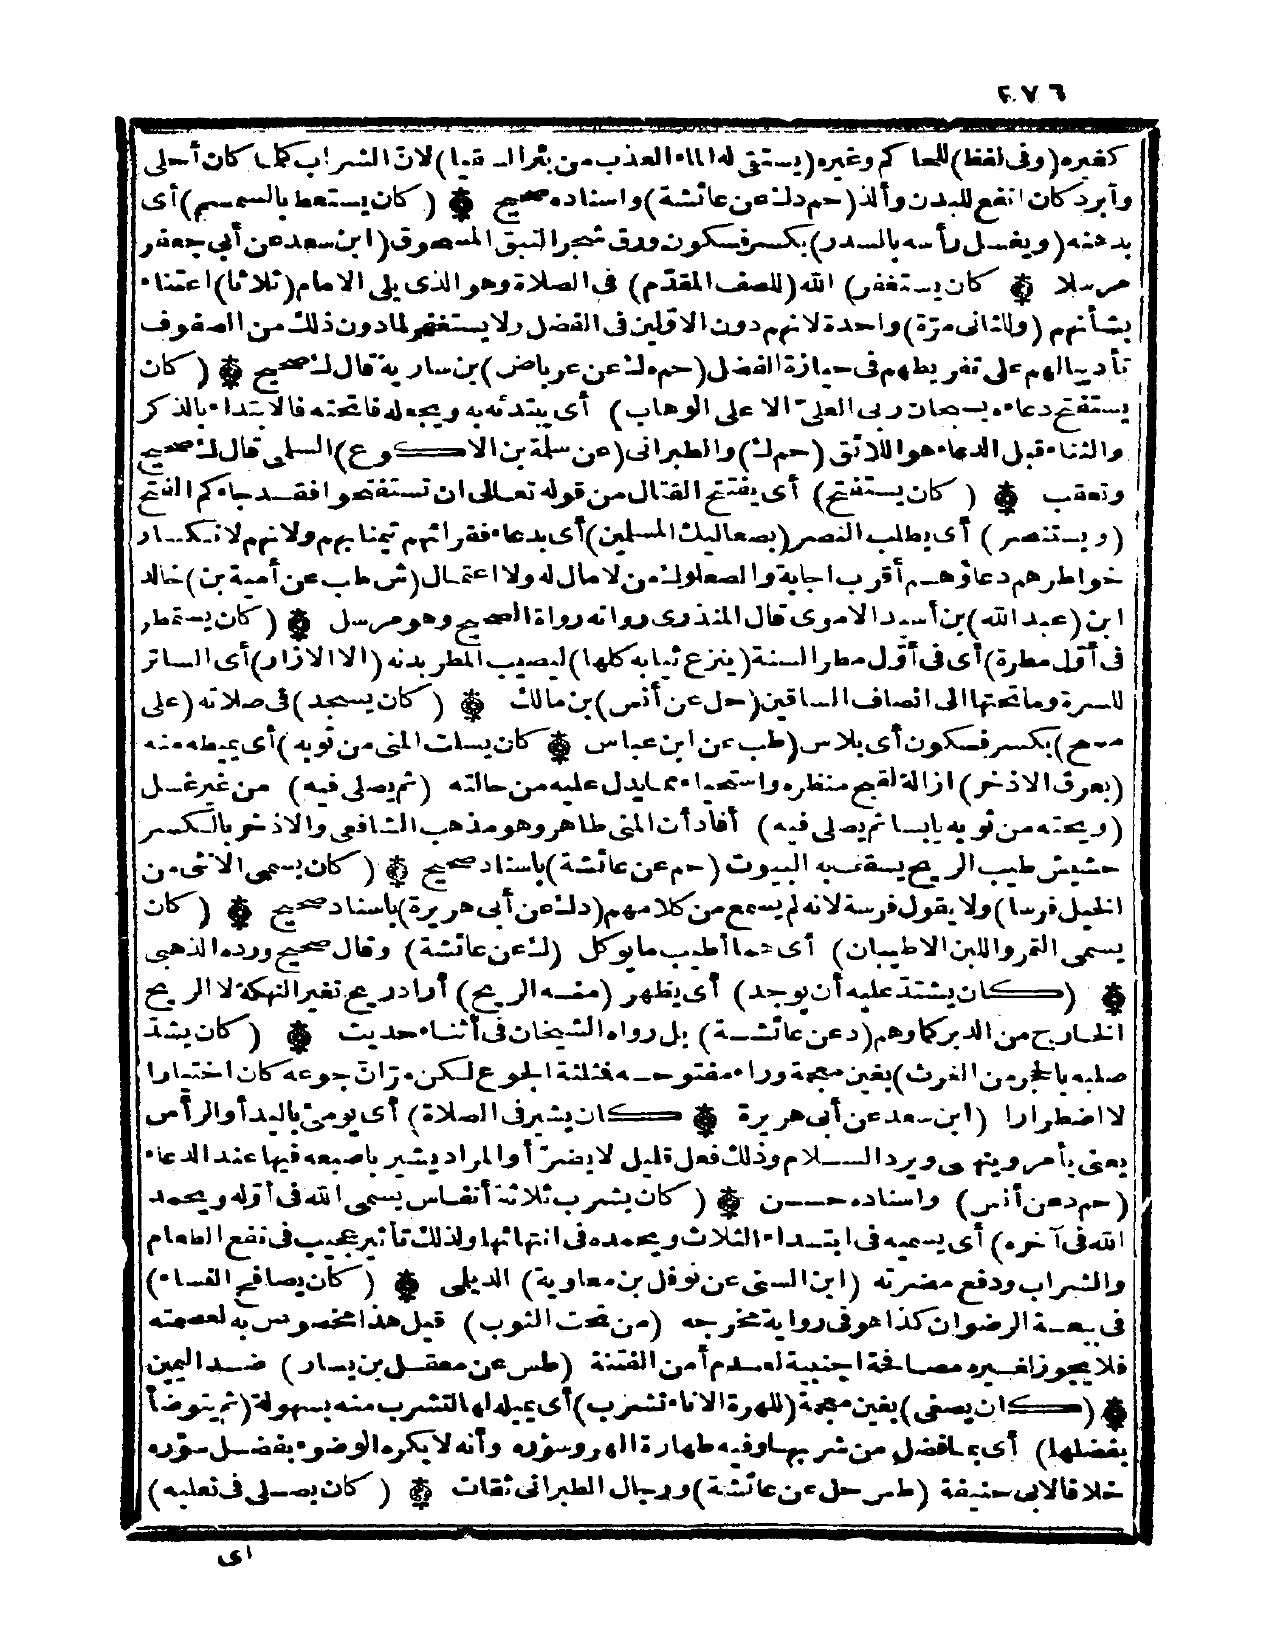 ٢٧٦
كغيره (وفى لفظ) للحاكم وغيره (يستقى له الماء العذب من بئر السقيا) لان الشراب كلما كان أحلى
وأبرد كان انفع للبدن وألذ (حم دك عن عائشة) واسناده صحيح ❁ (كان يستعط بالسمسم) أى
بدهنه (ويغسل رأسه بالسدر) بكسر فسكون ورق شجر النبق المسحوق (ابن سعد عن أبى جعفر
مرسلا ❁ كان يستغفر) الله (للصف المقدم) فى الصلاة وهو الذى يلى الامام (ثلاثا) اعتناء
بشأنهم (وللثانى مرة) واحدة لانهم دون الاولين فى الفضل ولا يستغفر لما دون ذلك من الصفوف
تأديبا لهم على تفريطهم فى حيازة الفضل (حم ه ك عن عرباض) بن سارية قال ك صحيح ❁ (كان
يستفتح دعاءه بسبحان ربى العلى الاعلى الوهاب) أى يبتدئه به ويجعله فاتحته فالابتداء بالذكر
والثناء قبل الدعاء هو اللائق (حم ك) والطبرانى (عن سلمة بن الاكوع) السلمى قال ك صحيح
وتعقب ❁ (كان يستفتح) أى يفتتح القتال من قوله تعالى ان تستفتحوا فقد جاءكم الفتح
(ويستنصر) أى يطلب النصر (بصعاليك المسلمين) أى بدعاء فقرائهم تيمنا بهم ولانهم لانكسار
خواطرهم دعاؤهم أقرب اجابة والصعلوك من لا مال له ولا اعتمال (ش طب عن أمية بن) خالد
ابن (عبد الله) بن أسيد الاموى قال المنذرى رواته رواة الصحيح وهو مرسل ❁ (كان يستمطر
فى أول مطرة) أى فى أول مطر السنة (ينزع ثيابه كلها) ليصيب المطر بدنه (الا الازار) أى الساتر
للسرة وما تحتها الى انصاف الساقين (حل عن أنس) بن مالك ❁ (كان يسجد) فى صلاته (على
مسح) بكسر فسكون أى بلاس (طب عن ابن عباس ❁ كان يسلت المنى من ثوبه) أى يميطه منه
(بعرق الاذخر) ازالة لقبح منظره واستحياء مما يدل عليه من حالته (ثم يصلى فيه) من غير غسل
(ويحته من ثوبه يابسا ثم يصلى فيه) أفاد أن المنى طاهر وهو مذهب الشافعى والاذخر بالكسر
حشيش طيب الريح يسقف به البيوت (حم عن عائشة) باسناد صحيح ❁ (كان يسمى الانثى من
الخيل فرسا) ولا يقول فرسة لانه لم يسمع من كلامهم (دك عن أبى هريرة) باسناد صحيح ❁ (كان
يسمى التمر واللبن الاطيبان) أى هما أطيب ما يؤكل (ك عن عائشة) وقال صحيح ورده الذهبى
❁ (كان يشتد عليه أن يوجد) أى يظهر (منه الريح) أراد ريح تغير النكهة لا الريح
الخارج من الدبر كما وهم (د عن عائشة) بل رواه الشيخان فى أثناء حديث ❁ (كان يشد
صلبه بالحجر من الغرث) بغين معجمة وراء مفتوحة فثلثة الجوع لكن مر ان جوعه كان اختيارا
لا اضطرارا (ابن سعد عن أبى هريرة ❁ كان يشير فى الصلاة) أى يومئ باليد أو الرأس
يعنى يأمر وينهى ويرد السلام وذلك فعل قليل لا يضر أو المراد يشير باصبعه فيها عند الدعاء
(حم د عن أنس) واسناده حسن ❁ (كان يشرب ثلاثة أنفاس يسمى الله فى أوله ويحمد
الله فى آخره) أى يسميه فى ابتداء الثلاث ويحمده فى انتهائها ولذلك تأثير عجيب فى نفع الطعام
والشراب ودفع مضرته (ابن السنى عن نوفل بن معاوية) الديلى ❁ (كان يصافح النساء)
فى بيعة الرضوان كذا هو فى رواية مخرجه (من تحت الثوب) قيل هذا مخصوص به لعصمته
فلا يجوز لغيره مصافحة اجنبية لعدم أمن الفتنة (طس عن معقل بن يسار) ضد اليمين
❁ (كان يصغى) بغين معجمة (للهرة الاناء فتشرب) أى يميله لها لتشرب منه بسهولة (ثم يتوضأ
بفضلها) أى بما فضل من شربها وفيه طهارة الهر وسؤره وأنه لا يكره الوضوء بفضل سؤره
خلافا لابى حنيفة (طس حل عن عائشة) ورجال الطبرانى ثقات ❁ (كان يصلى فى نعليه)
اى